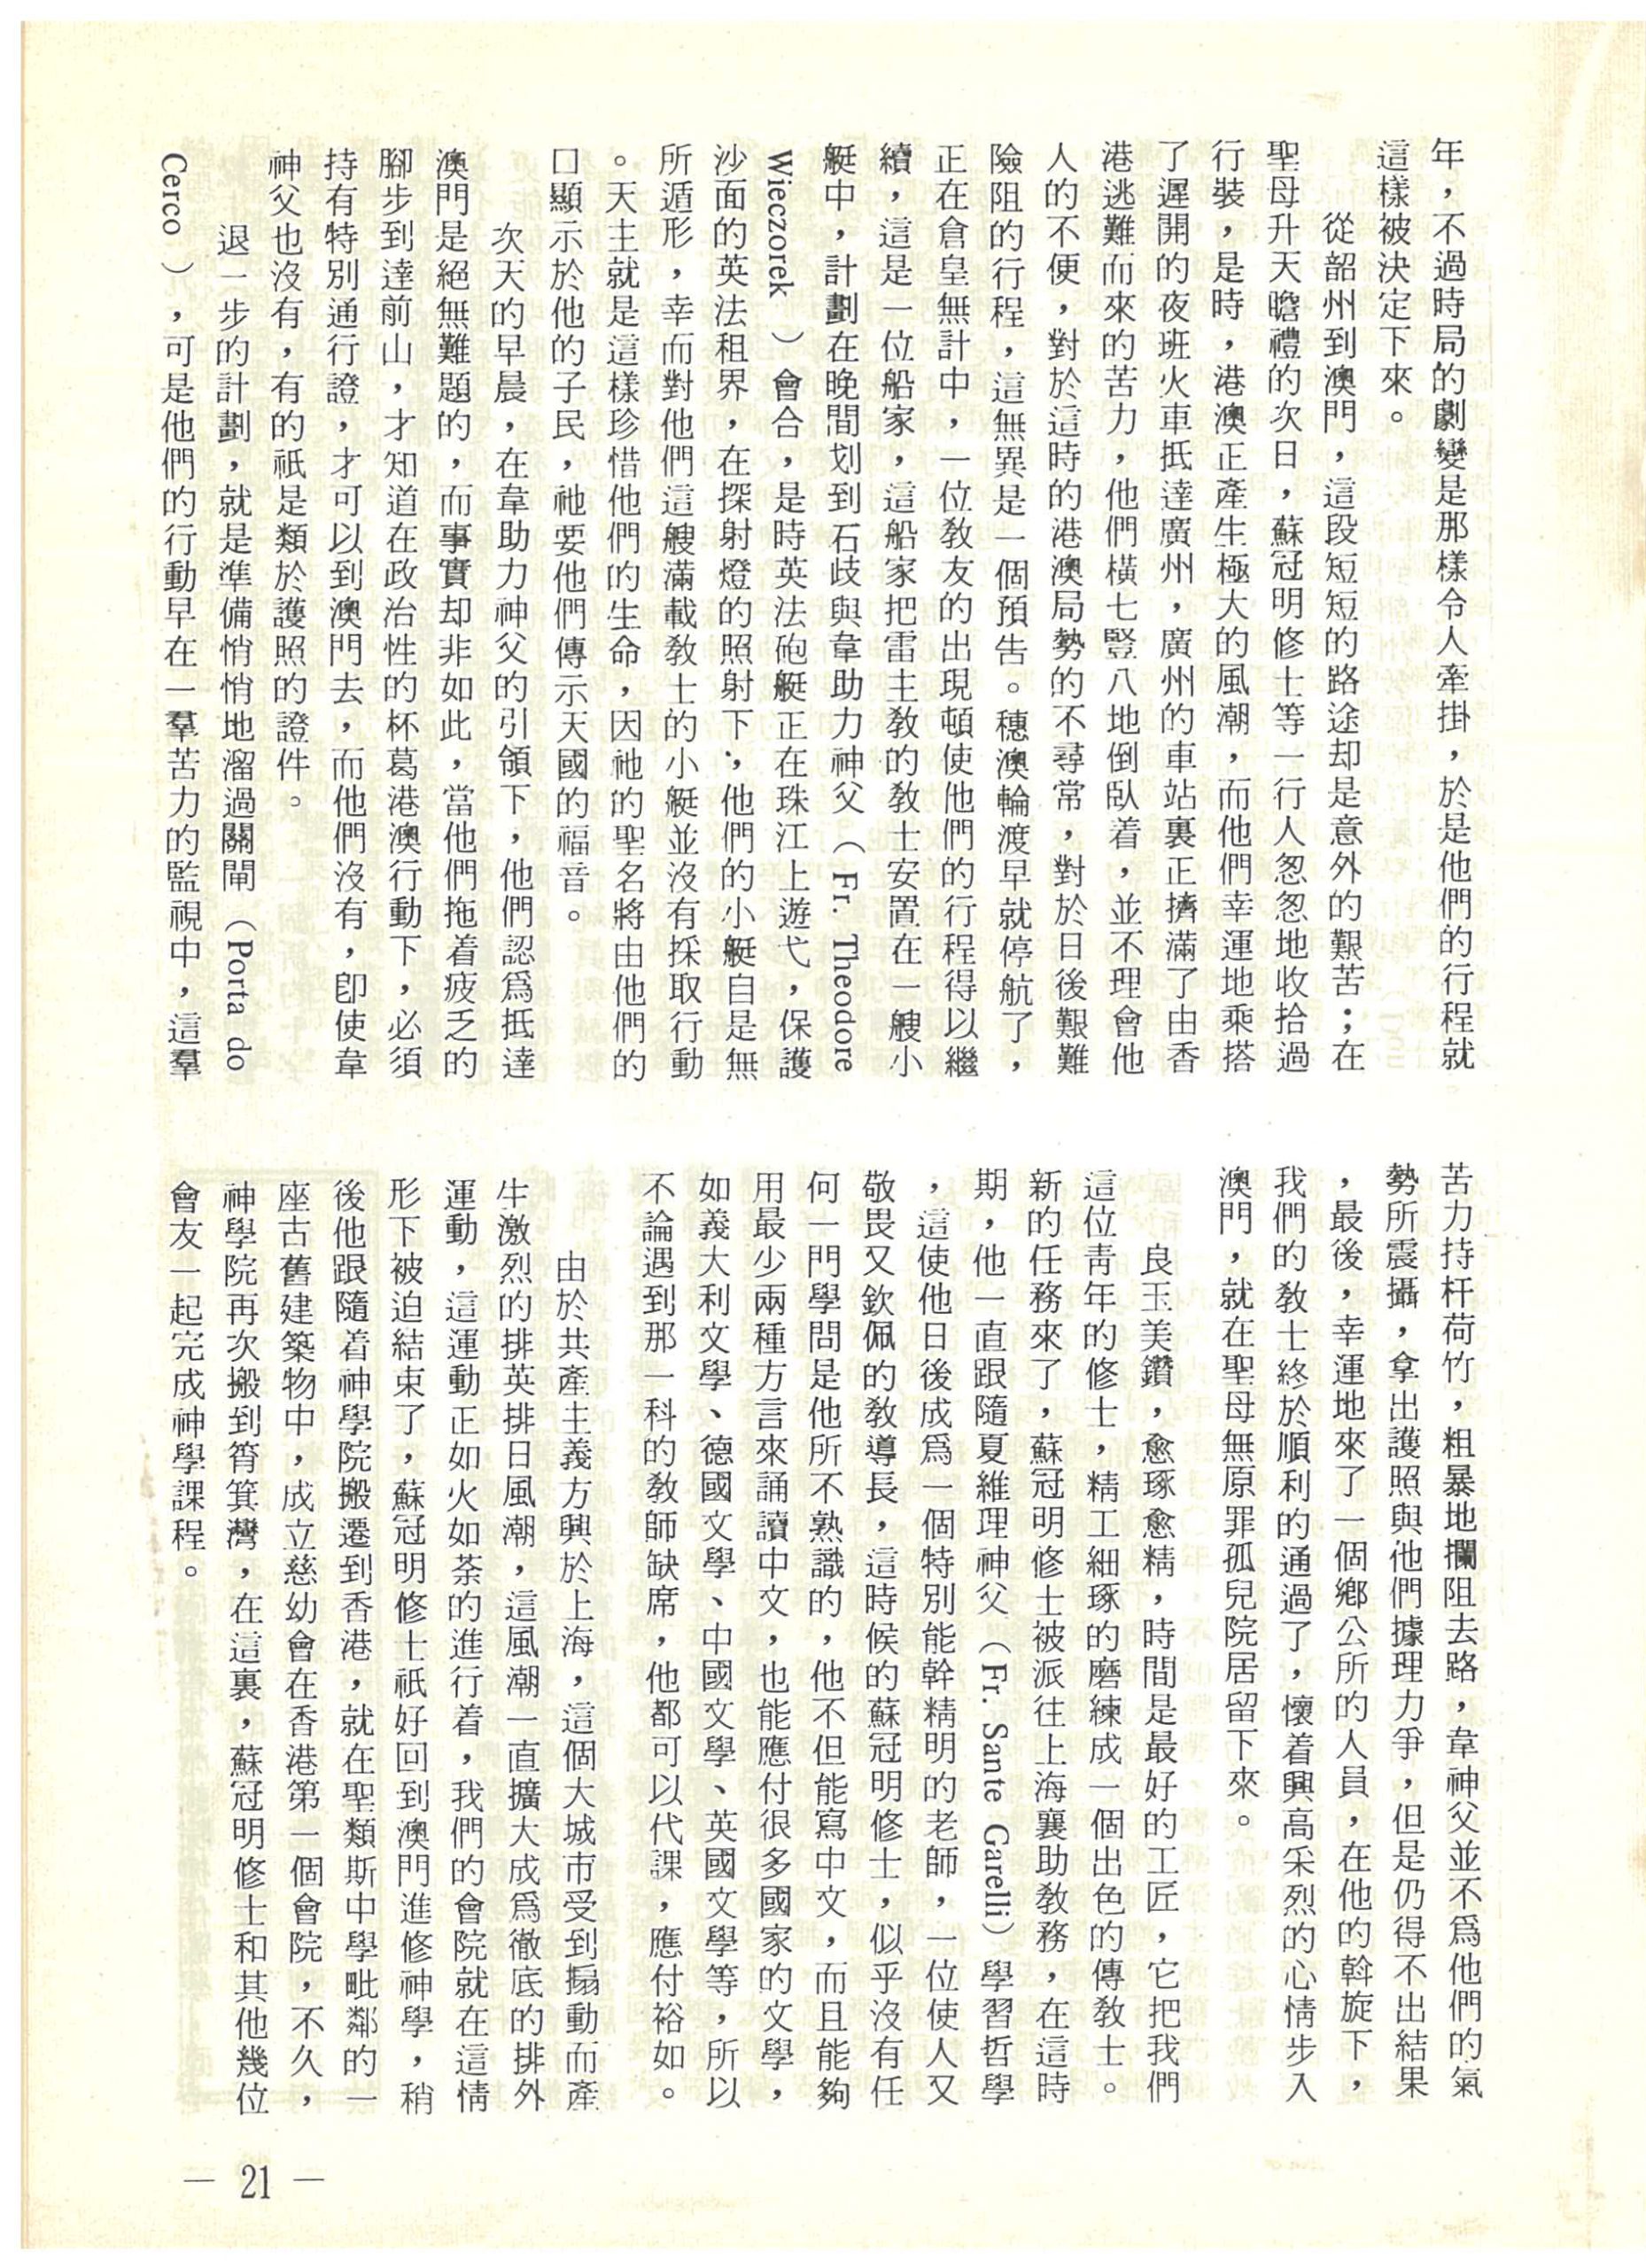 年，不過時局的劇變是那樣令人牽掛，於是他們的行程就
這樣被決定下來。
從韶州到澳門，這段短短的路途却是意外的艱苦；在
聖母升天瞻禮的次日，蘇冠明修士等一行人怱怱地收拾過
行裝，是時，港澳正產生極大的風潮，而他們幸運地乘搭
了遲開的夜班火車抵達廣州，廣州的車站裏正擠滿了由香
港逃難而來的苦力，他們橫七豎八地倒臥着，並不理會他
人的不便，對於這時的港澳局勢的不尋常，對於日後艱難
險阻的行程，這無異是一個預告。穗澳輪渡早就停航了，
正在倉皇無計中，一位敎友的出現頓使他們的行程得以繼
續，這是一位船家，這船家把雷主敎的敎士安置在一艘小
艇中，計劃在晚間划到石歧與韋助力神父（Fr. Theodore
Wieczorek ）會合，是時英法砲艇正在珠江上遊弋，保護
沙面的英法租界，在探射燈的照射下；他們的小艇自是無
所遁形，幸而對他們這艘滿載敎士的小艇並沒有採取行動
。天主就是這樣珍惜他們的生命，因祂的聖名將由他們的
口顯示於他的子民，祂要他們傳示天國的福音。
次天的早晨，在韋助力神父的引領下，他們認爲抵達
澳門是絕無難題的，而事實却非如此，當他們拖着疲乏的
腳步到達前山，才知道在政治性的杯葛港澳行動下，必須
持有特別通行證，才可以到澳門去，而他們沒有，卽使韋
神父也沒有，有的祇是類於護照的證件。
退一步的計劃，就是準備悄悄地溜過關閘 （Porta do
Cerco ），可是他們的行動早在一羣苦力的監視中，這羣
苦力持杆荷竹，粗暴地攔阻去路，韋神父並不爲他們的氣
勢所震攝，拿出護照與他們據理力爭，但是仍得不出結果
，最後，幸運地來了一個鄉公所的人員，在他的斡旋下，
我們的敎士終於順利的通過了，懷着興高采烈的心情步入
澳門，就在聖母無原罪孤兒院居留下來。
良玉美鑽，愈琢愈精，時間是最好的工匠，它把我們
這位靑年的修士，精工細琢的磨練成一個出色的傳敎士。
新的任務來了，蘇冠明修士被派往上海襄助敎務，在這時
期，他一直跟隨夏維理神父（Fr. Sante Garelli）學習哲學
，這使他日後成爲一個特別能幹精明的老師，一位使人又
敬畏又欽佩的敎導長，這時候的蘇冠明修士，似乎沒有任
何一門學問是他所不熟識的，他不但能寫中文，而且能夠
用最少兩種方言來誦讀中文，也能應付很多國家的文學，
如義大利文學、德國文學、中國文學、英國文學等，所以
不論遇到那一科的敎師缺席，他都可以代課，應付裕如。
由於共產主義方興於上海，這個大城市受到搧動而產
生激烈的排英排日風潮，這風潮一直擴大成爲徹底的排外
運動，這運動正如火如荼的進行着，我們的會院就在這情
形下被迫結束了，蘇冠明修士祇好回到澳門進修神學，稍
後他跟隨着神學院搬遷到香港，就在聖類斯中學毗鄰的一
座古舊建築物中，成立慈幼會在香港第一個會院，不久，
神學院再次搬到筲箕灣，在這裏，蘇冠明修士和其他幾位
會友一起完成神學課程。
— 21 —